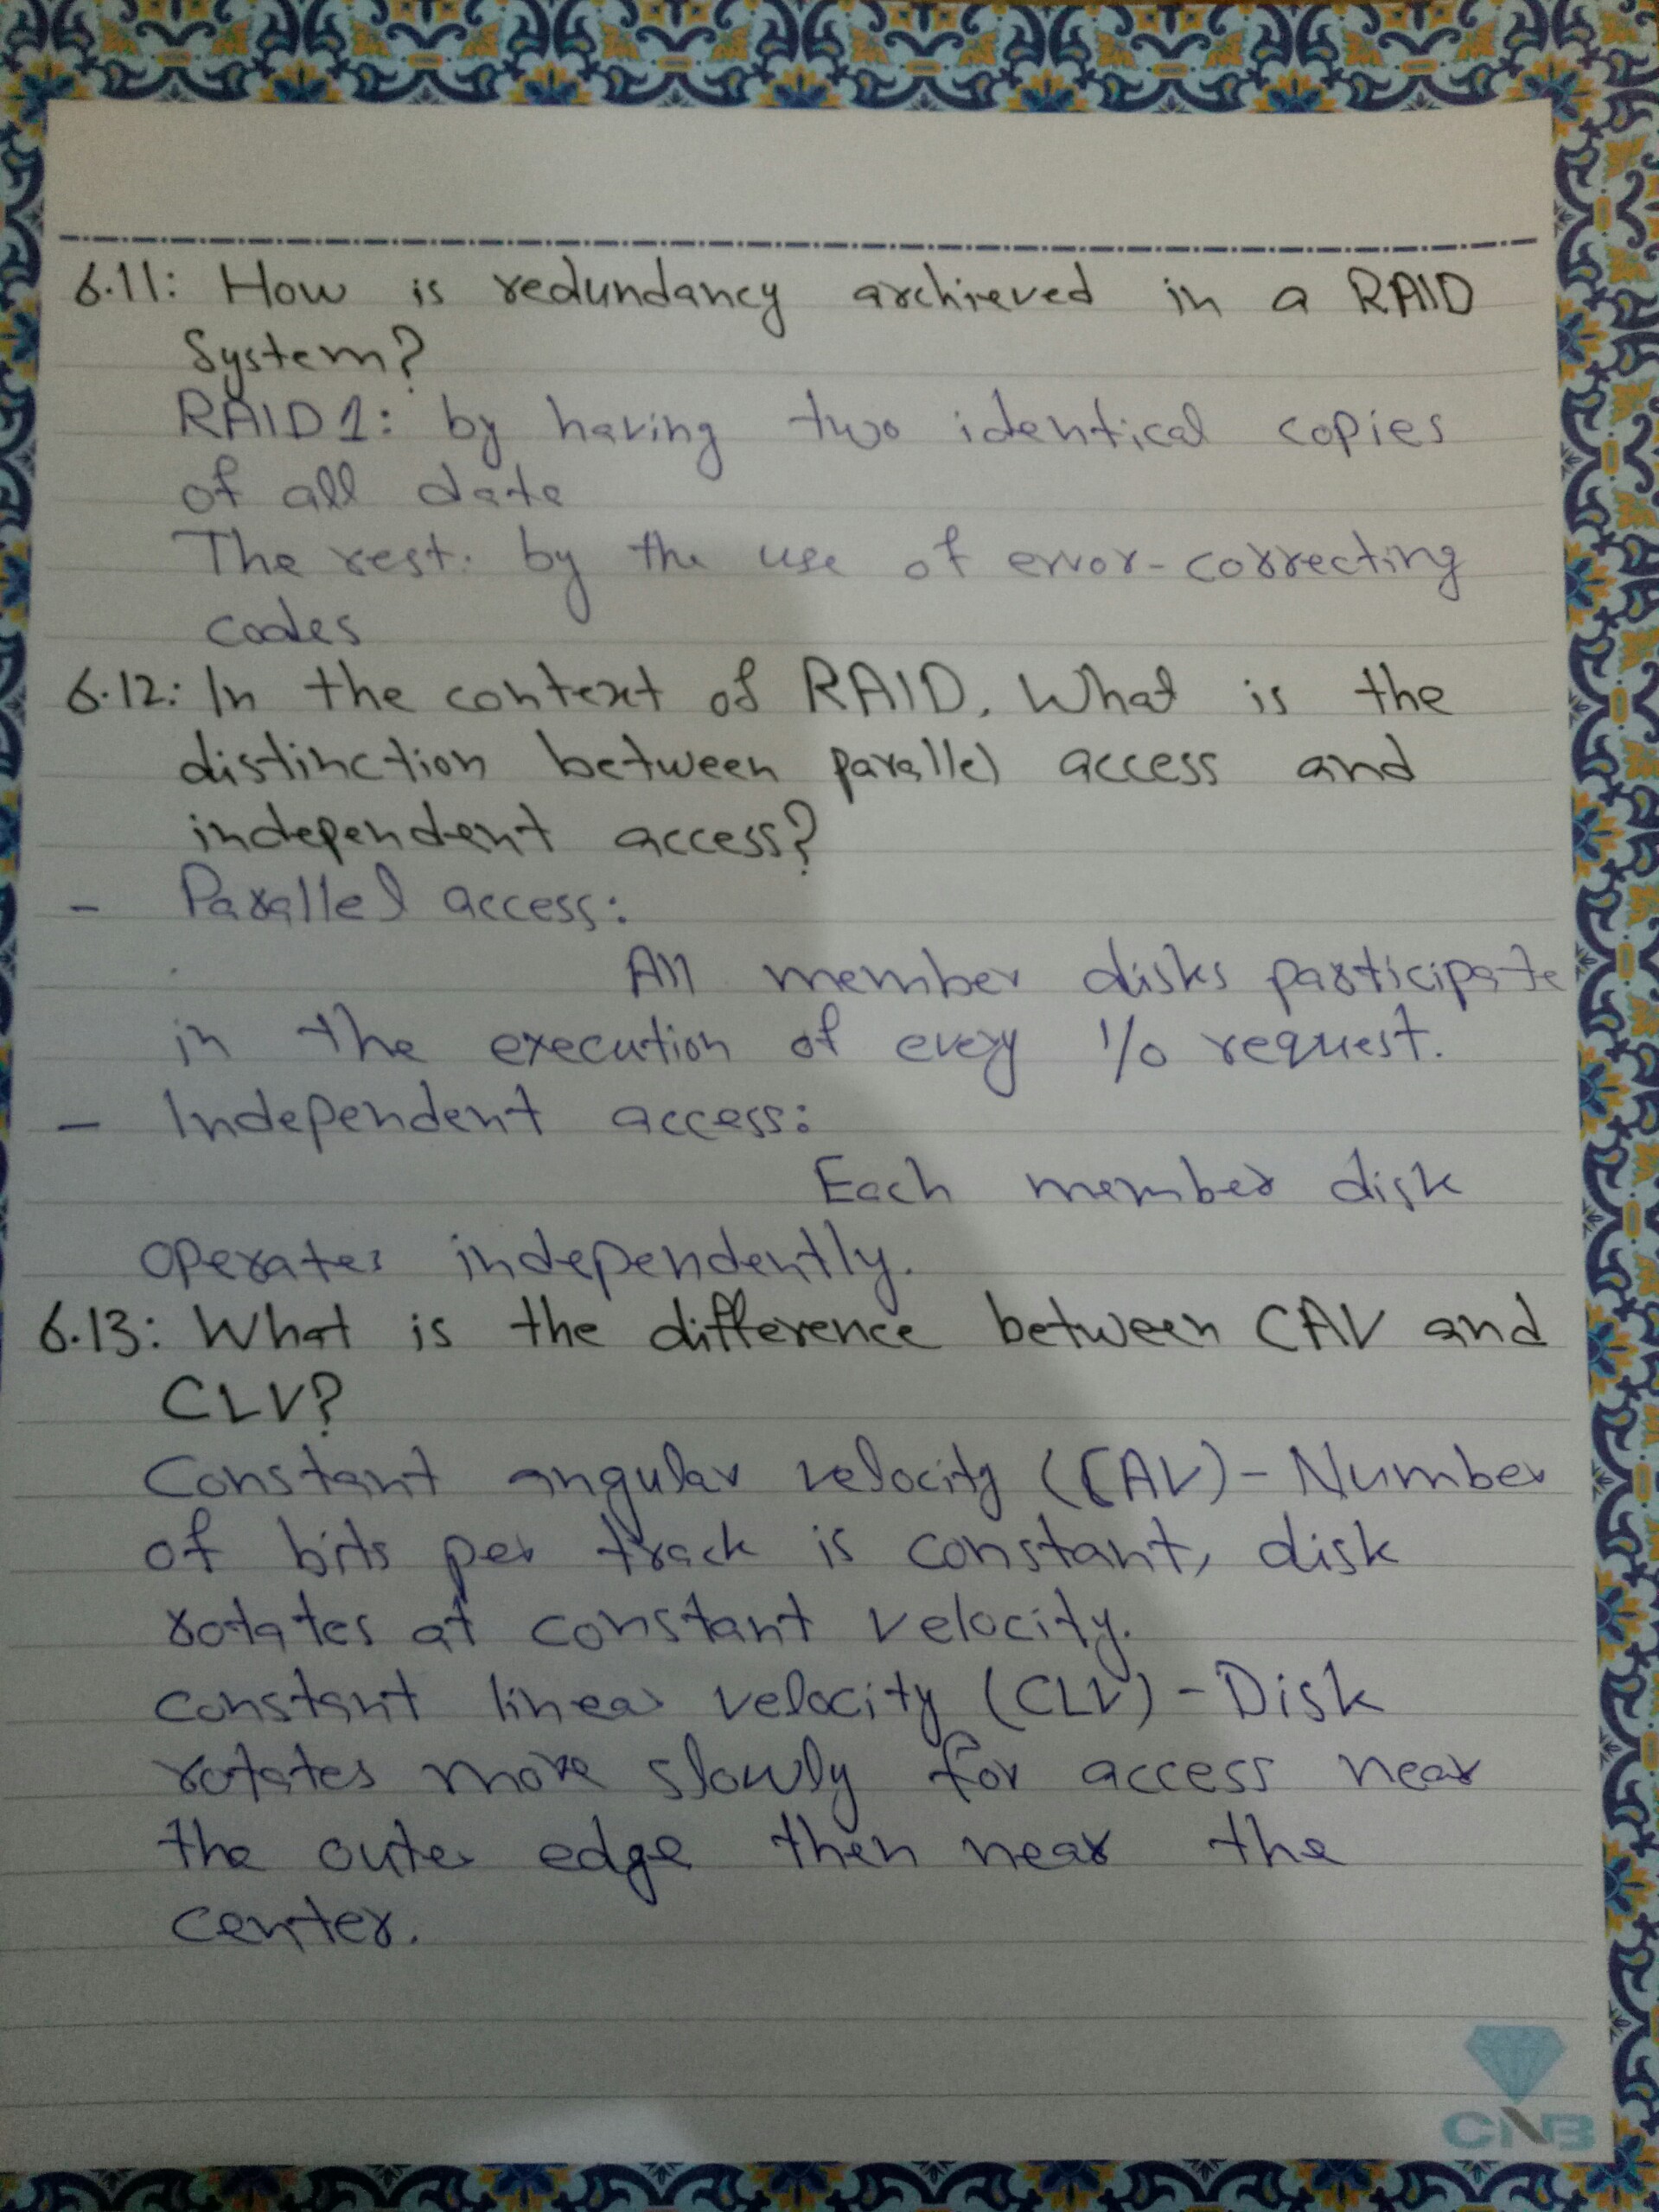 6.11: How is redundancy archieved in a RAID
System?
RAID 1: by having two identical copies
of all data
The rest: by the use of error-correcting
codes
6.12: In the context of RAID, What is the
distinction between parallel access and
independent access?
- Parallel access:
All member disks participate
in the execution of every I/o request.
- Independent access:
Each member disk
operates independently.
6.13: What is the difference between CAV and
CLV?
Constant angular velocity (CAV) - Number
of bits per track is constant, disk
rotates at constant velocity.
constant linear velocity (CLV) - Disk
rotates more slowly for access near
the outer edge then near the
center.
CNB